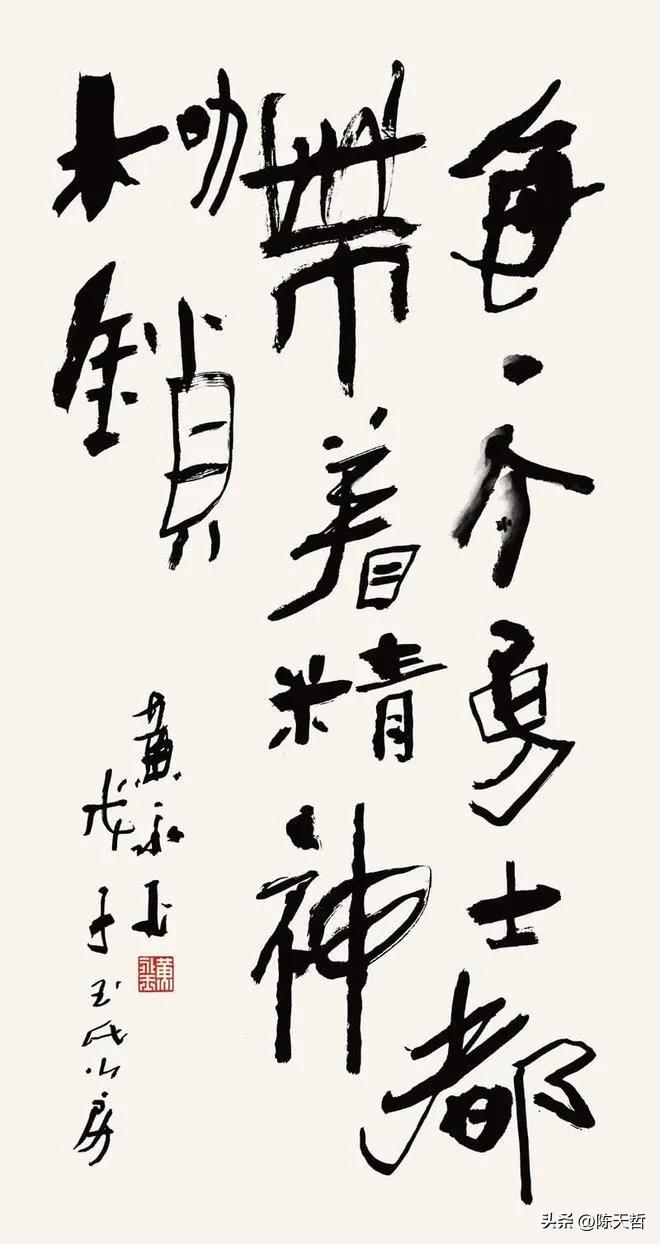 每一个勇士都
帶着精神
枷鎖
黄永玉
于玉氏山房
头条 @陈天哲